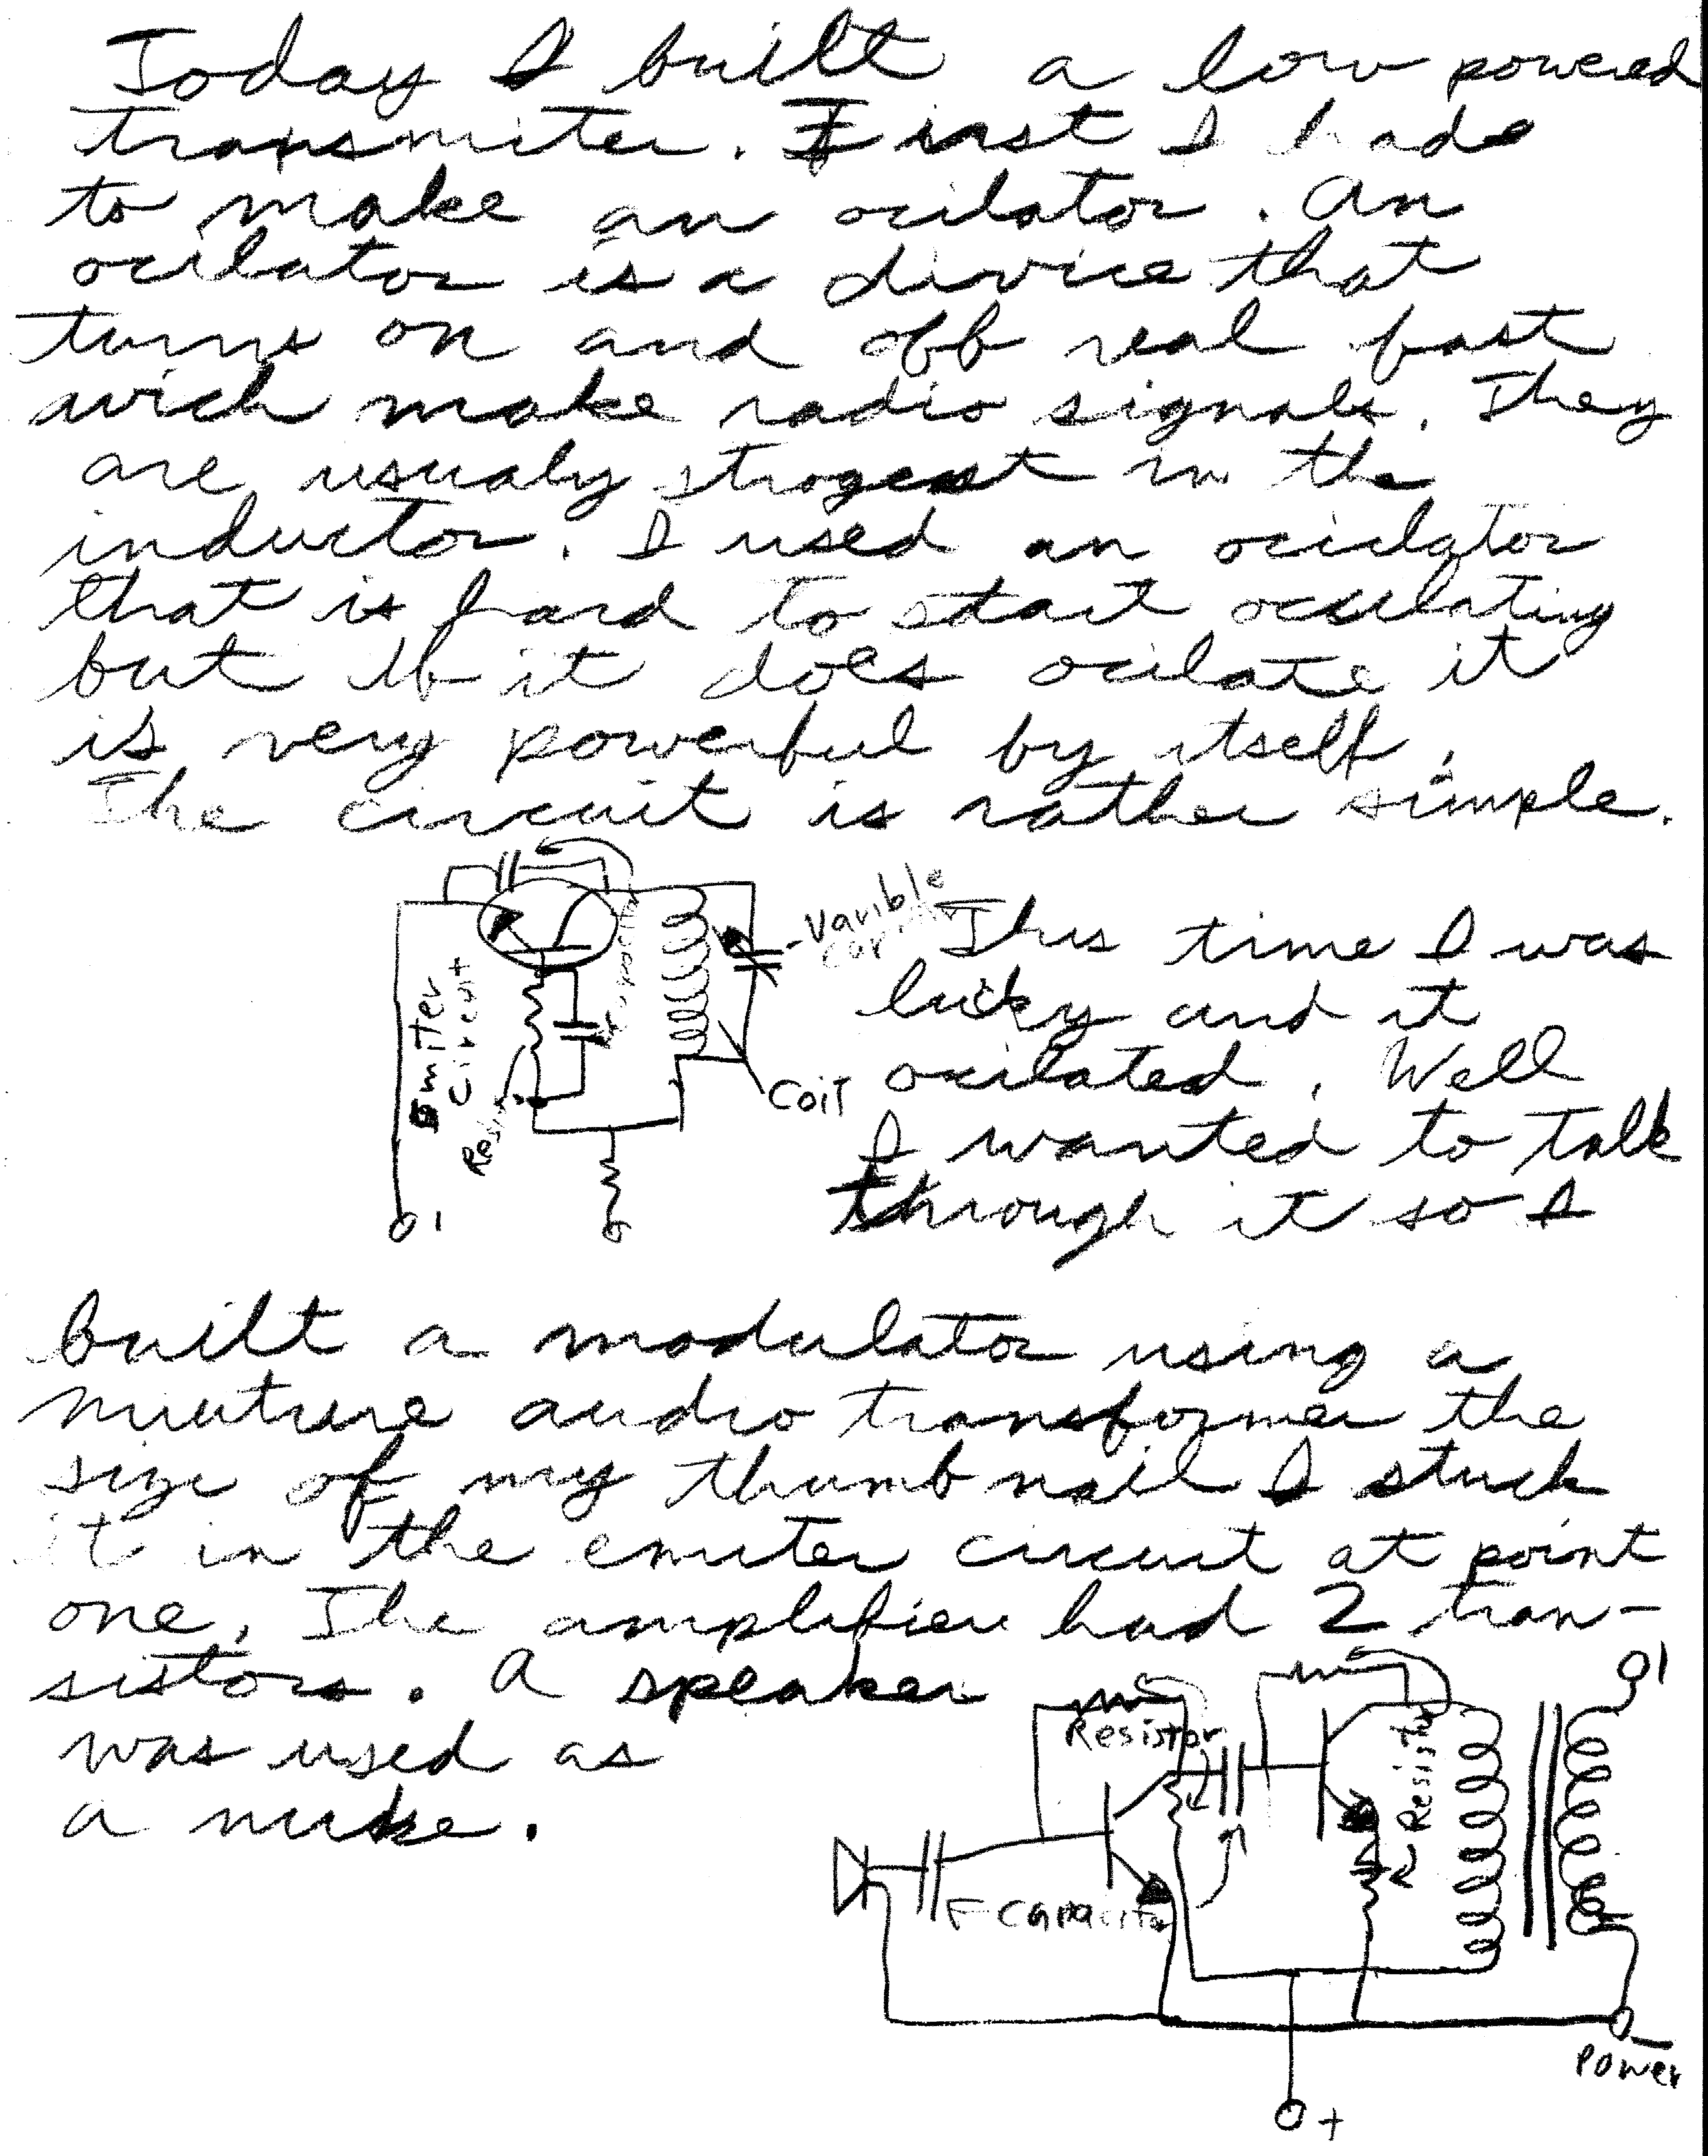 Today I built a low powered
transmiter. First I hade
to make an ocilator. An
ocilator is a divice that
turns on and off real fast
wich make radio signals. They
are usualy strogest in the
inductor. I used an ocilator
that is hard to start ocilating
but if it does ocilate it
is very powerful by itself.
The circuit is rather simple.
Varible
Emiter
Circuit
Resistor
Coil
1
This time I was
lucky and it
ocilated. Well
I wanted to talk
through it so I
built a modulator using a
audio transformer the
size of my thumb nail I stuck
it in the emiter circuit at point
one. The amplifier had 2 tran-
sistors. A speaker
was used as
a mike.
1
Resistor
Resistor
Capacitor
-
Power
+